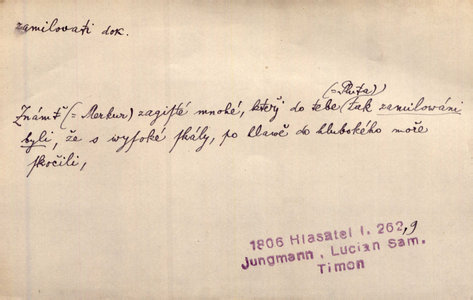 zamilovati dok.
(= Pluta)
Známť (= Merkur) zagisté mnohé, kteřj do tebe tak zamilowáni
byli, že s wysoké skály, po hlawě do hlubokého moře
skočili,
1806 Hlasatel I. 262,9
Jungmann, Lucian Sam.
Timon